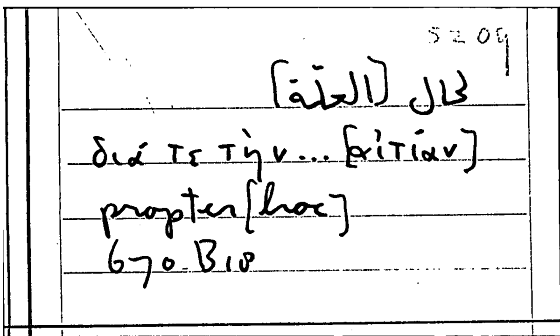 5209
لحال [العلّة]
διά τε τὴν... [αἰτίαν]
propter [hoc]
670.B18